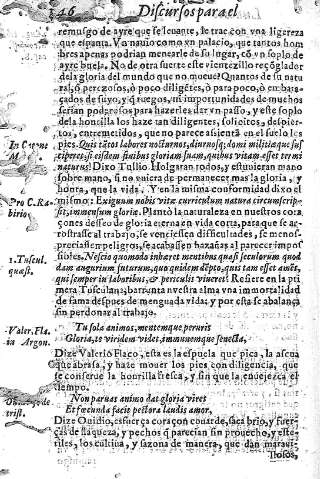 146 Discursos para el
remusgo de ayre que se leuante, le trae con vna ligereza
que espanta. Vn nauio como vn palacio, que tantos hom
bres apenas podrian menearle de su lugar, cõ vn soplo de
ayre buela. No de otra suerte este vientezillo
de la gloria del mundo que no mueue? Quantos de su natu
ral, ò perezosos, ò poco diligẽtes, ò para poco, ò en bara-
çados de suyo, y q̃ ruegos, ni importunidades de muchos
serian poderosos para hazerles dar vn passo, y este soplo
dela honrilla los haze tan diligentes, solicitos, despier-
tos, entremetidos, que no parece assientã en el suelo los
pies. Quis tãtos labores nocturnos, diurnosq; domi militiæ que sus
ciperet, si eisdem finibus gloriam suam, quibus vitam esset termi
naturus? Dixo Tullio. Holgaran todos, y estuuieran mano
sobre mano, si no vuiera de permanecer mas la gloria, y
honra, que la vida. Y en la misma conformidad dixo el
mismo: Exigunm nobis vitæ curriculum natura circumscrip-
sit, immensum gloriæ. Plantò la naturaleza en nuestros cora
çones desseo de gloria eterna en vida corta, para que se ar-
rostrasse al trabajo, se venciessen dificultades, se meno-
preciassen peligros, se acabassen hazañas al parecer impos
sibles. Nescio quomodo inhæret mentibus quasi seculorum quod
dam augurium futurum, quo quidem dẽpto, quis tam esset amẽs,
qui semper in laboribus, & periculis viueret? Refiere en la pri
mera Tusculana, barrunta nuestra alma vna immortalidad
de fama despues de menguada vida: y por esta se abalança
sin perdonar al trabajo.
Tu sola animos, mentemque peruris
Gloria, te viridem videt, immunemque senecta,
Dize Valerio Flaco, esta es la espuela que pica, la ascua
que abrasa, y haze mouer los pies con diligencia, que
se conserue la honrilla fresca, y sin que la enuejezca el
tiempo.
Non paruas animo dat gloria vires
Et fœcunda facit pectora laudis amor,
Dize Ouidio, esfuerça coraçon couarde, saca brio, y fuer-
ças de flaqueza, y pechos q̃ parecian sin prouecho, y este-
riles, los cultiua, y sazona de manera, que dan marauí-
llosos,
Pro C. Ra-
birio.
1. Tuscul.
quæst.
Valer. Fla.
in Argon.
trist.